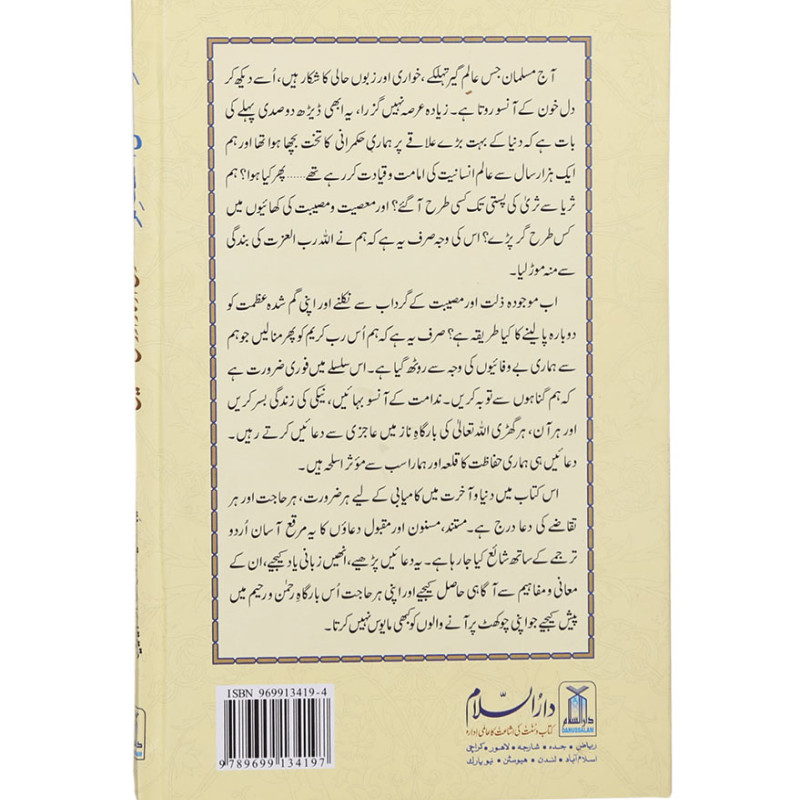 آج مسلمان جس عالم گیر تہلکے، خواری اور زبوں حالی کا شکار ہیں، اُسے دیکھ کر
دل خون کے آنسو روتا ہے۔ زیادہ عرصہ نہیں گزرا، یہ ابھی ڈیڑھ دو صدی پہلے کی
بات ہے کہ دنیا کے بہت بڑے علاقے پر ہماری حکمرانی کا تخت بچھا ہوا تھا اور ہم
ایک ہزار سال سے عالم انسانیت کی امامت و قیادت کر رہے تھے...... پھر کیا ہوا؟ ہم
ثریا سے ثریٰ کی پستی تک کسی طرح آ گئے؟ اور معصیت و مصیبت کی کھائیوں میں
کس طرح گر پڑے؟ اس کی وجہ صرف یہ ہے کہ ہم نے اللہ رب العزت کی بندگی
سے منہ موڑ لیا۔
اب موجودہ ذلت اور مصیبت کے گرداب سے نکلنے اور اپنی گم شدہ عظمت کو
دوبارہ پا لینے کا کیا طریقہ ہے؟ صرف یہ ہے کہ ہم اُس رب کریم کو پھر منا لیں جو ہم
سے ہماری بے وفائیوں کی وجہ سے روٹھ گیا ہے۔ اس سلسلے میں فوری ضرورت ہے
کہ ہم گناہوں سے توبہ کریں۔ ندامت کے آنسو بہائیں، نیکی کی زندگی بسر کریں
اور ہر آن، ہر گھڑی اللہ تعالیٰ کی بارگاہِ ناز میں عاجزی سے دعائیں کرتے رہیں۔
دعائیں ہی ہماری حفاظت کا قلعہ اور ہمارا سب سے مؤثر اسلحہ ہیں۔
اس کتاب میں دنیا و آخرت میں کامیابی کے لیے ہر ضرورت، ہر حاجت اور ہر
تقاضے کی دعا درج ہے۔ مستند، مسنون اور مقبول دعاؤں کا یہ مرقع آسان اُردو
ترجمے کے ساتھ شائع کیا جا رہا ہے۔ یہ دعائیں پڑھیے، انھیں زبانی یاد کیجیے، ان کے
معانی و مفاہیم سے آگاہی حاصل کیجیے اور اپنی ہر حاجت اُس بارگاہِ رحمٰن و رحیم میں
پیش کیجیے جو اپنی چوکھٹ پر آنے والوں کو کبھی مایوس نہیں کرتا۔
ISBN 969913419-4
9789699134197
دارالسلام
کتاب و سنت کی اشاعت کا عالمی ادارہ
ریاض • جدہ • شارجہ • لاہور • کراچی
اسلام آباد • لندن • ہیوسٹن • نیو یارک
دارالسلام
DARUSSALAM